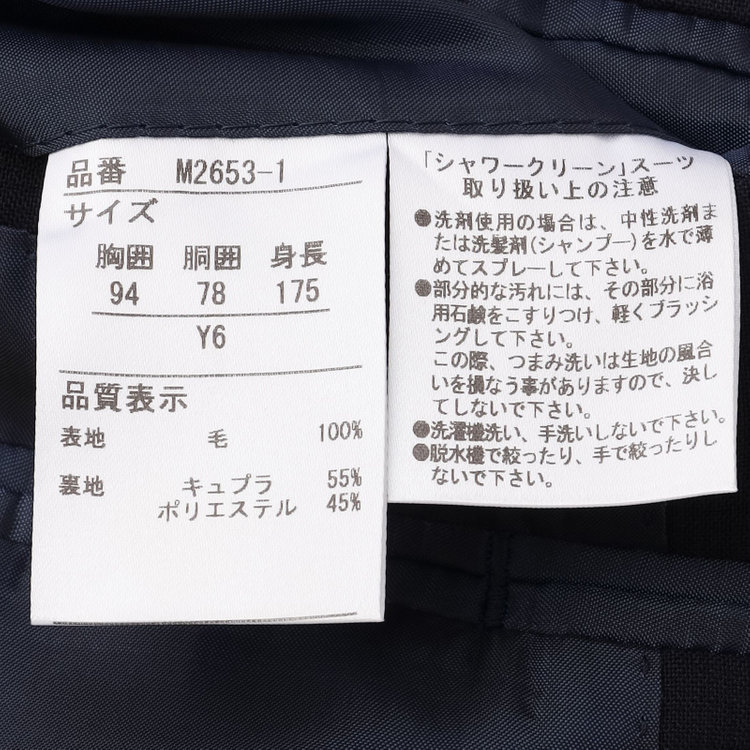 品番 M2653-1
サイズ
胸囲 胴囲 身長
94 78 175
Y6
品質表示
表地 毛 100%
裏地 キュプラ 55%
ポリエステル 45%
「シャワークリーン」スーツ
取り扱い上の注意
●洗剤使用の場合は、中性洗剤ま
たは洗髪剤(シャンプー)を水で薄
めてスプレーして下さい。
●部分的な汚れには、その部分に浴
用石鹸をこすりつけ、軽くブラッシ
ングして下さい。
この際、つまみ洗いは生地の風合
いを損なう事がありますので、決し
てしないで下さい。
●洗濯機洗い、手洗いしないで下さい。
●脱水機で絞ったり、手で絞ったりし
ないで下さい。